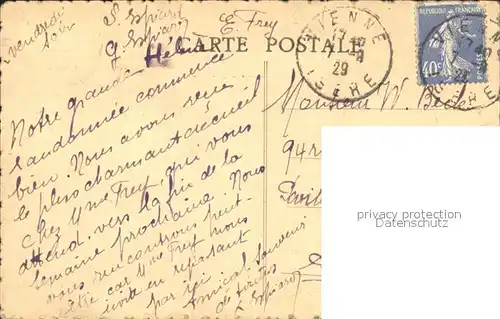 vendredi
soir
S. Espiard
G. Espiard
E. Frey
Hélène
CARTE POSTALE
VIENNE
29
ISERE
REPUBLIQUE FRANCAISE
40c
Notre grande
randonnée commence
bien. Nous avons reçu
le plus charmant accueil
chez Mme Frey, qui vous
attend vers la fin de la
semaine prochaine. Nous
vous rencontrerons peut-
être car Mme Frey nous
invite en repassant
par ici
Amical Souvenir
de tous
Monsieur W. Beck
94
privacy protection
Datenschutz